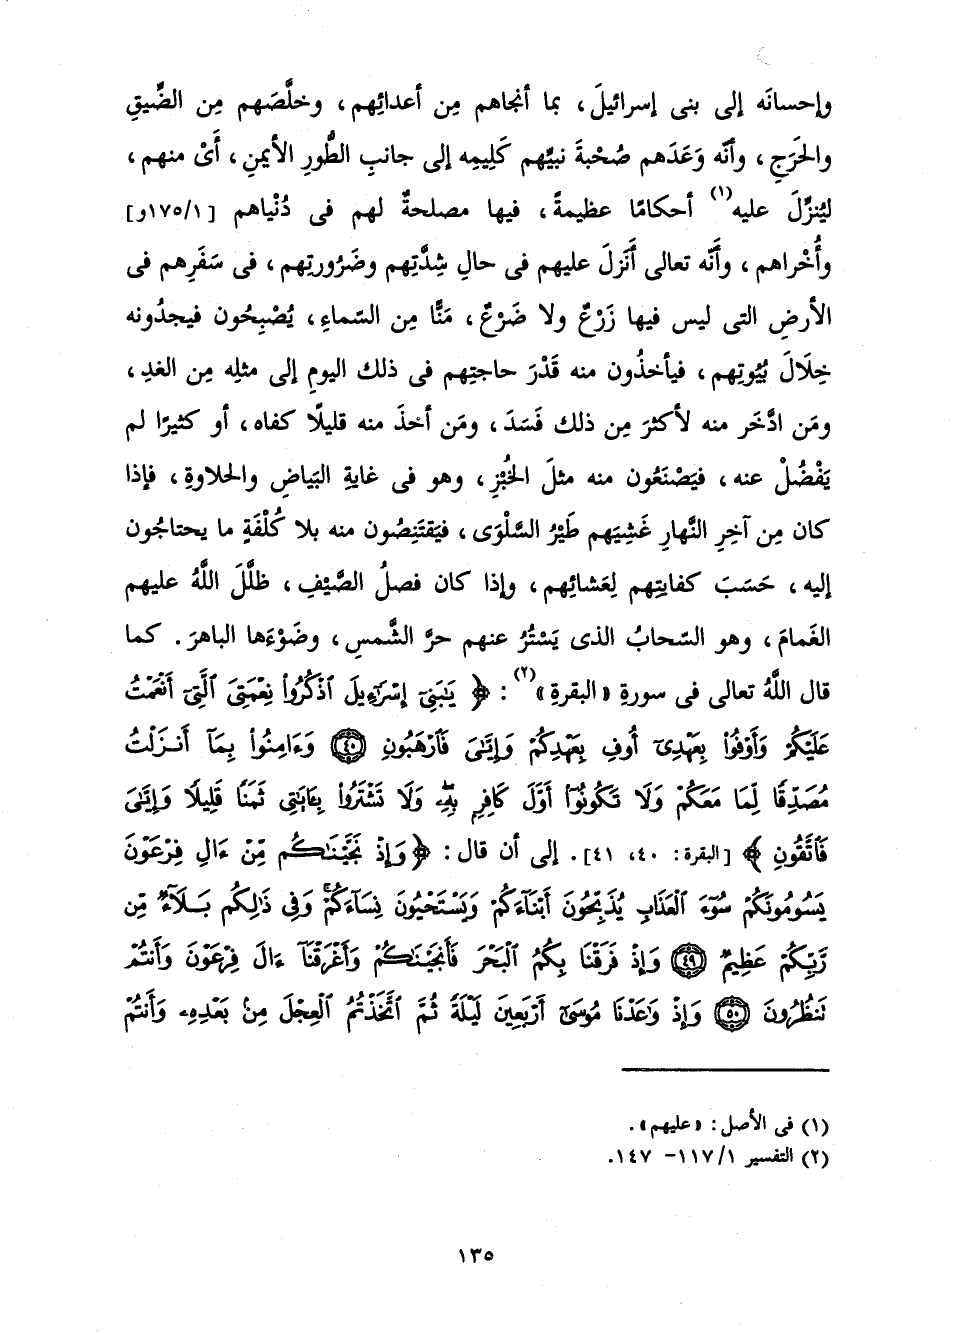 وإحسانَه إلى بنى إسرائيلَ، بما أنجاهم مِن أعدائِهم، وخلَّصَهم مِن الضِّيقِ
والحَرَجِ، وأنَّه وَعَدَهم صُحْبةَ نبيِّهم كَلِيمِه إلى جانبِ الطُّورِ الأيمنِ، أَىْ منهم،
ليُنزِّلَ عليه(١) أحكامًا عظيمةً، فيها مصلحةٌ لهم فى دُنْياهم [١٧٥/١و]
وأُخْراهم، وأَنَّه تعالى أَنزلَ عليهم فى حالِ شِدَّتِهم وضَرُورتِهم، فى سَفَرِهم فى
الأرضِ التى ليس فيها زَرْعٌ ولا ضَرْعٌ، مَنًّا مِن السّماءِ، يُصْبِحُون فيجدُونه
خِلَالَ بُيُوتِهم، فيأخذُون منه قَدْرَ حاجتِهم فى ذلك اليومِ إلى مثلِه مِن الغدِ،
ومَن ادَّخَر منه لأكثرَ مِن ذلك فَسَدَ، ومَن أخذَ منه قليلًا كفاه، أو كثيرًا لم
يَفْضُلْ عنه، فيَصْنَعُون منه مثلَ الخُبْزِ، وهو فى غايةِ البَياضِ والحلاوةِ، فإذا
كان مِن آخِرِ النَّهارِ غَشِيَهم طَيْرُ السَّلْوَى، فيَقتَنِصُون منه بلا كُلْفَةٍ ما يحتاجُون
إليه، حَسَبَ كفايتِهم لِعَشائِهم، وإذا كان فصلُ الصَّيْفِ، ظلَّلَ اللَّهُ عليهم
الغَمامَ، وهو السّحابُ الذى يَسْتُرُ عنهم حرَّ الشَّمسِ، وضَوْءَها الباهرَ. كما
قال اللَّهُ تعالى فى سورةِ «البقرةِ»(٢): ﴿ يَٰبَنِىٓ إِسْرَٰٓءِيلَ ٱذْكُرُوا۟ نِعْمَتِىَ ٱلَّتِىٓ أَنْعَمْتُ
عَلَيْكُمْ وَأَوْفُوا۟ بِعَهْدِىٓ أُوفِ بِعَهْدِكُمْ وَإِيَّٰىَ فَٱرْهَبُونِ ﴿٤٠﴾ وَءَامِنُوا۟ بِمَآ أَنزَلْتُ
مُصَدِّقًا لِّمَا مَعَكُمْ وَلَا تَكُونُوٓا۟ أَوَّلَ كَافِرٍۭ بِهِۦ وَلَا تَشْتَرُوا۟ بِـَٔايَٰتِى ثَمَنًا قَلِيلًا وَإِيَّٰىَ
فَٱتَّقُونِ ﴾ [البقرة: ٤٠، ٤١]. إلى أن قال: ﴿ وَإِذْ نَجَّيْنَٰكُم مِّنْ ءَالِ فِرْعَوْنَ
يَسُومُونَكُمْ سُوٓءَ ٱلْعَذَابِ يُذَبِّحُونَ أَبْنَآءَكُمْ وَيَسْتَحْيُونَ نِسَآءَكُمْ ۚ وَفِى ذَٰلِكُم بَلَآءٌ مِّن
رَّبِّكُمْ عَظِيمٌ ﴿٤٩﴾ وَإِذْ فَرَقْنَا بِكُمُ ٱلْبَحْرَ فَأَنجَيْنَٰكُمْ وَأَغْرَقْنَآ ءَالَ فِرْعَوْنَ وَأَنتُمْ
تَنظُرُونَ ﴿٥٠﴾ وَإِذْ وَٰعَدْنَا مُوسَىٰٓ أَرْبَعِينَ لَيْلَةً ثُمَّ ٱتَّخَذْتُمُ ٱلْعِجْلَ مِنۢ بَعْدِهِۦ وَأَنتُمْ
(١) فى الأصل: «عليهم».
(٢) التفسير ١/ ١١٧- ١٤٧.
١٣٥